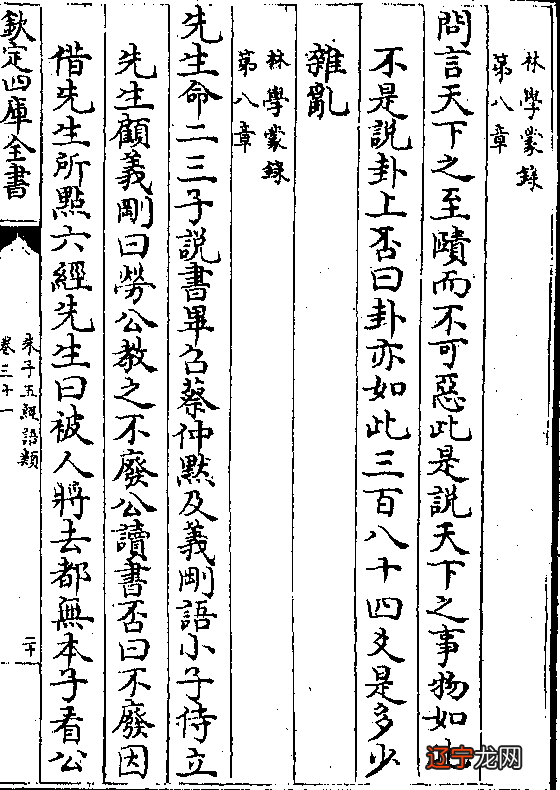 林學蒙錄
第八章
問言天下之至賾而不可惡此是說天下之事物如此
不是說卦上否曰卦亦如此三百八十四爻是多少
雜亂
林學蒙錄
第八章
先生命二三子說書畢召蔡仲黙及義剛語小子侍立
先生顧義剛曰勞公教之不廢公讀書否曰不廢因
借先生所點六經先生曰被人將去都無本子看公
欽定四庫全書
朱子五經語類
卷三十一
二十
辽宁龙网